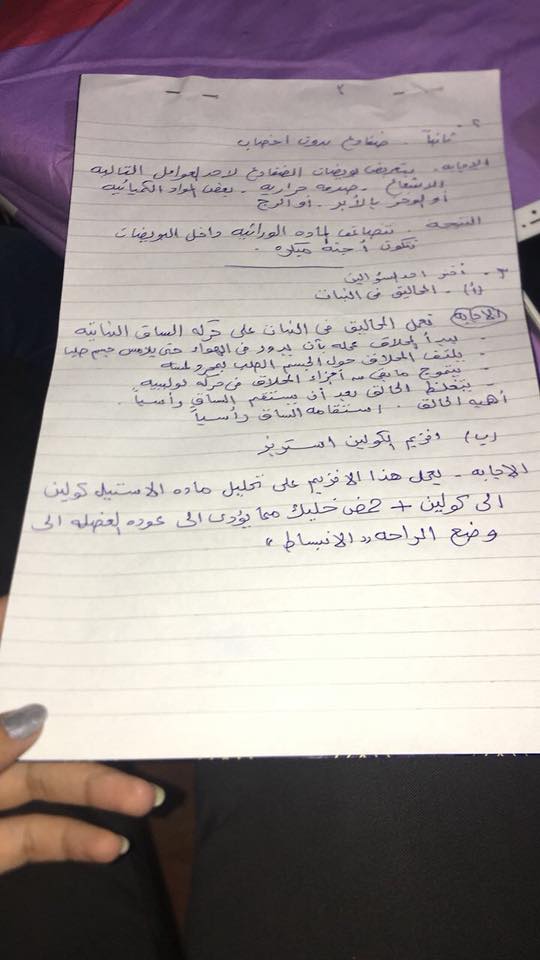 ٢
٢ -
ثانياً - ضفادع بدون اخصاب
الاجابه - بتعريض بويضات الضفادع لاحد لعوامل التاليه
الاشعاع - صدمه حراريه - بعض المواد الكيميائيه
أو الوخز بالأبر - أو الرج
النتيجة - تتضاعف الماده الوراثيه داخل البويضات
تتكون أجنة مبكره .
٣ - أختر احد السؤالين
(أ) - المحاليق فى النبات
الاجابة تعمل المحاليق فى النبات على حركه الساق النباتيه
- يبدأ المحلاق عمله بأن يدور فى الهواء حتى يلامس جسم صلبا
- يلتف المحلاق حول الجسم الصلب بمجرد لمسه
- يتموج مابقى من أجزاء المحلاق فى حركه لولبيه
- يتغلظ الحالق بعد أن يستقيم الساق رأسياً .
أهمية الحالق . استقامه الساق رأسياً
(ب) أنزيم الكولين استريز
الاجابه - يعمل هذا الانزيم على تحليل ماده الاستيل كولين
الى كولين + حمض خليك مما يؤدى الى عوده العضله الى
وضع الراحه " الانبساط "